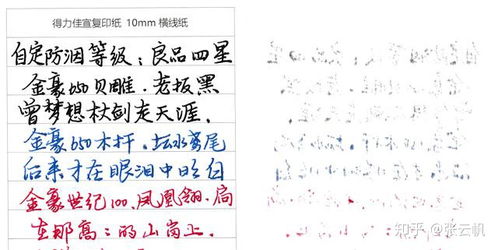 得力佳宣复印纸 10mm 横线纸
自定防洇等级：良品四星
金豪650贝雕．老板黑
曾梦想杖剑走天涯．
金豪650木杆．坛水鸢尾
后来才在眼泪中明白
金豪世纪100．凤凰翎．扃
在那高：的山岗上．
知乎 @张云帆